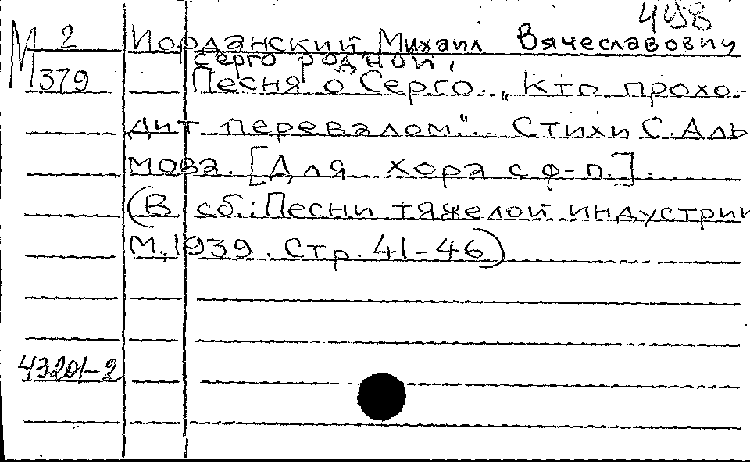 498
М 2 Иорданский Михаил Вячеславович
Серго родной,
М 379 Песня о Серго. „Кто прохо-
дит перевалом“. Стихи С. Аль
мова. [Для хора с ф-п.]
(В сб.: Песни тяжелой индустрии
М, 1939. Стр. 41-46)
43201-2